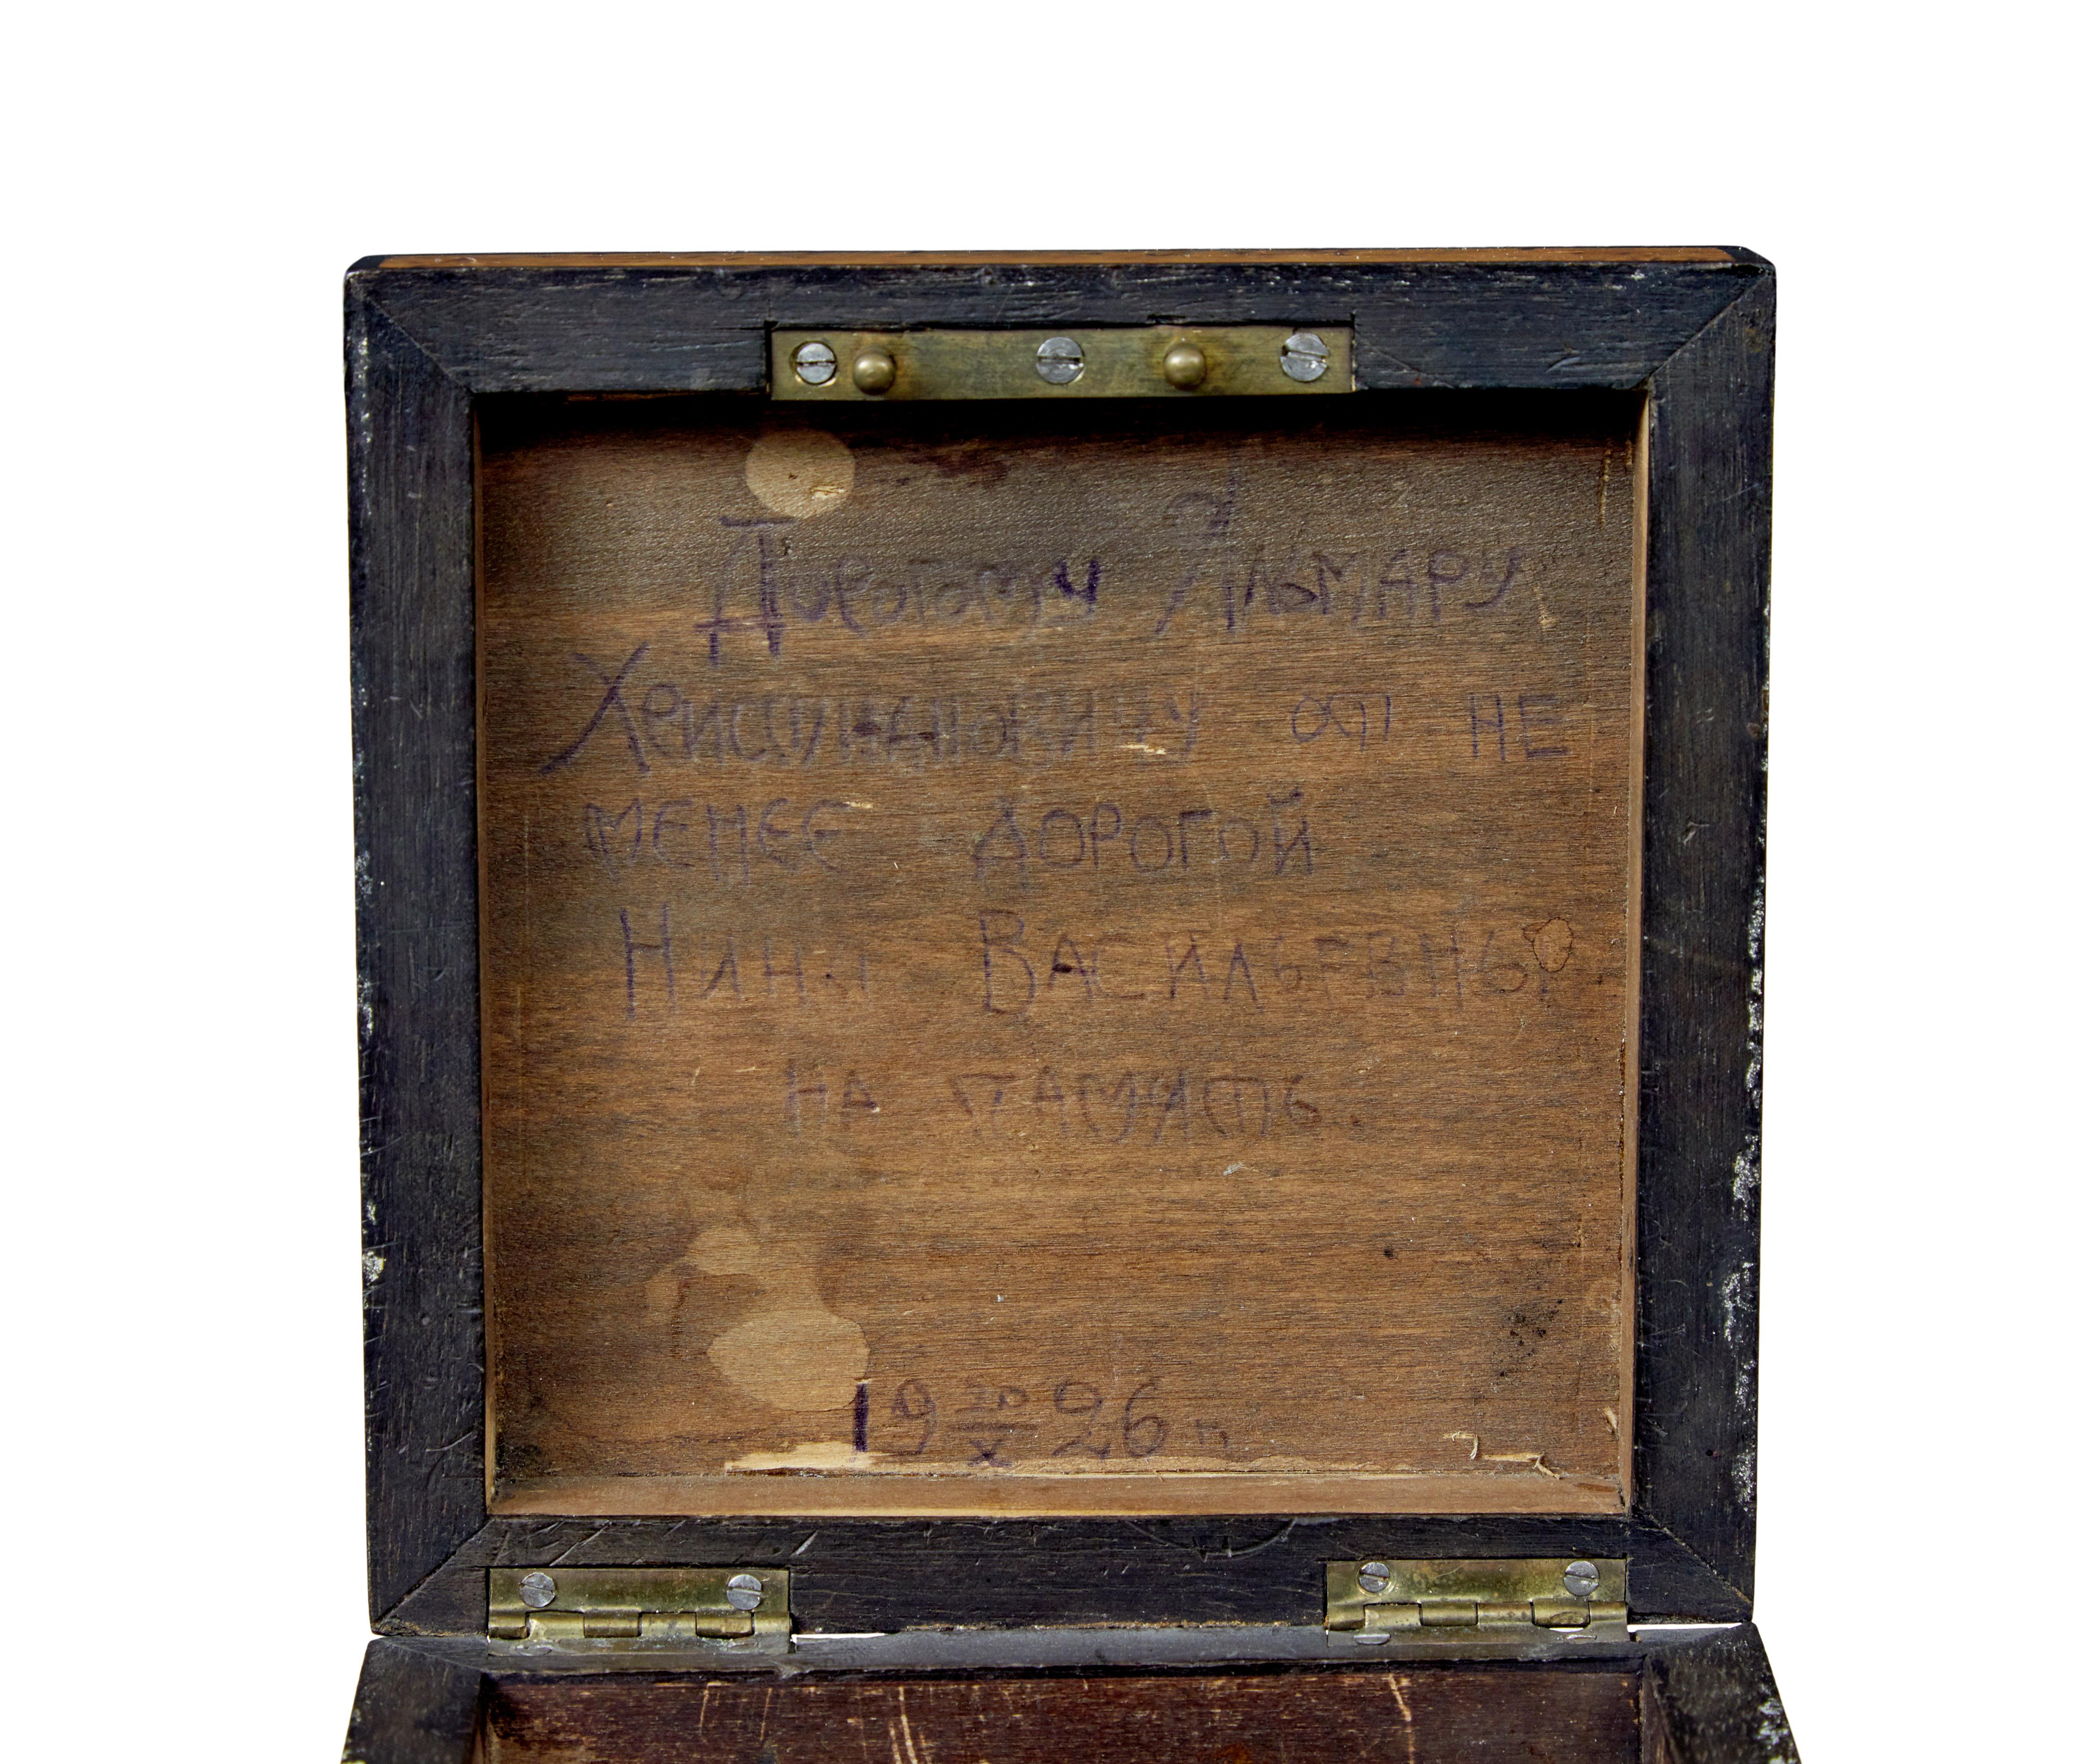 Дорогому Альмару
Христиановичу от не
менее дорогой
Нины Васильевны
на память.
19 20/X 26 г.